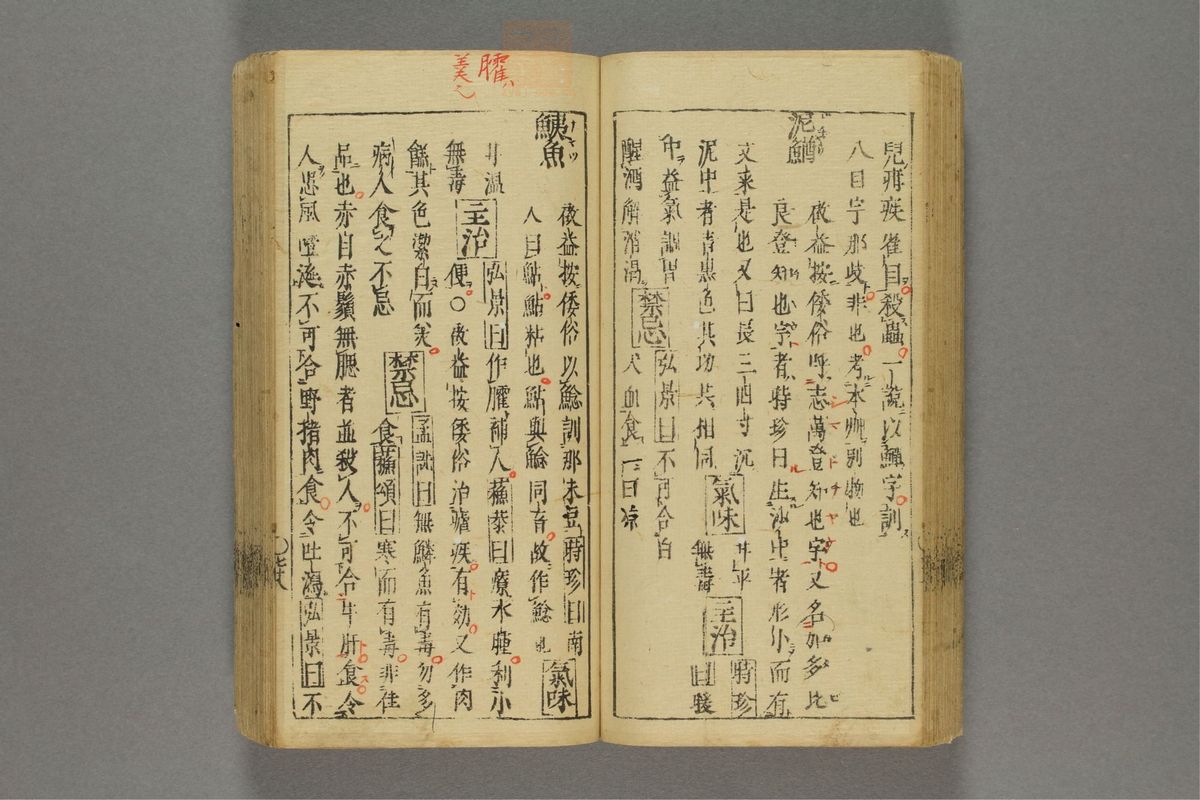 兒疳疾雀目殺蟲一說以鱓字訓
八目字那歧非也考本艸別物也
泥鰌
啟益按倭俗呼志萬登知也宇又名如多比
良登知也宇者時珍曰生沙中者形小而有
文来是也又曰長三四寸沉
泥中者青黑色其功共相同
氣味
甘平
無毒
主治
時珍
曰暖
中益氣調胃
醒酒解消渴
禁忌
弘景曰不可合白
犬血食一曰凉
鮧魚
啟益按倭俗以鯰訓那末豆時珍曰南
人曰鮎鮎粘也鮎與鯰同音故作鯰也
氣味
甘温
無毒
主治
弘景曰作臛補人蘓恭曰療水腫利小
便〇啟益按倭俗治瘧疾有効又作肉
餻其色潔白而
病人食之不忌
禁忌
孟詵曰無鱗魚有毒勿多
食蘓頌曰寒而有毒非佳
品也赤目赤鬚無腮者並殺人不可合牛肝食令
人患風噎涎不可合野猪肉食令吐瀉弘景曰不
臛ハ
〇七十八